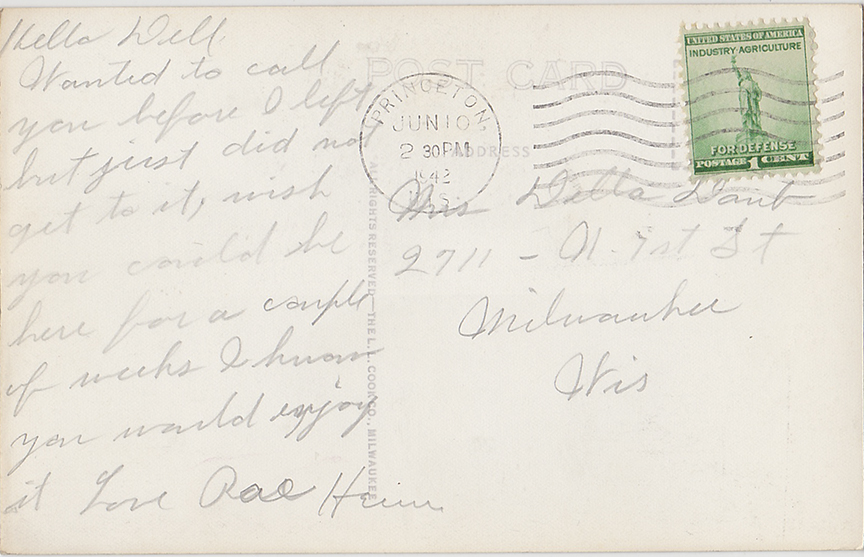 Hello Dell,
Wanted to call
you before I left
but just did not
get to it, wish
you could be
here for a couple
of weeks I know
you would enjoy
it Love Rae
POST CARD
ADDRESS
PRINCETON
JUN 10
2 30 PM
1942
WIS.
UNITED STATES OF AMERICA
INDUSTRY·AGRICULTURE
FOR DEFENSE
POSTAGE 1 CENT
Mrs Della Daub
2711 - N. 1st St
Milwaukee
Wis
ALL RIGHTS RESERVED—THE L.L. COOK CO., MILWAUKEE